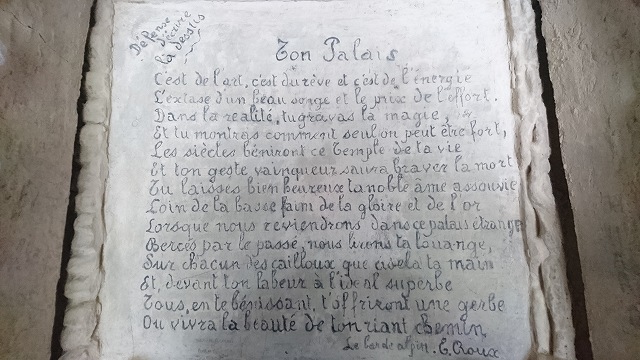 Défense
d'écrire
là dessus
Ton Palais
C'est de l'art, c'est du rêve et c'est de l'énergie
L'extase d'un beau songe et le prix de l'effort.
Dans la réalité, tu gravas la magie,
Et tu montras comment seul on peut être fort,
Les siècles béniront ce Temple de ta vie
Et ton geste vainqueur saura braver la mort
Tu laisses bien heureux ta noble âme assouvie
Loin de la basse faim de la gloire et de l'or
Lorsque nous reviendrons dans ce palais étrange
Bercés par le passé, nous lirons ta louange,
Sur chacun des cailloux que cisela ta main
Et, devant ton labeur à l'idéal superbe
Tous, en te bénissant, t'offriront une gerbe
Ou vivra la beauté de ton riant chemin
Le barde alpin. E. Croux